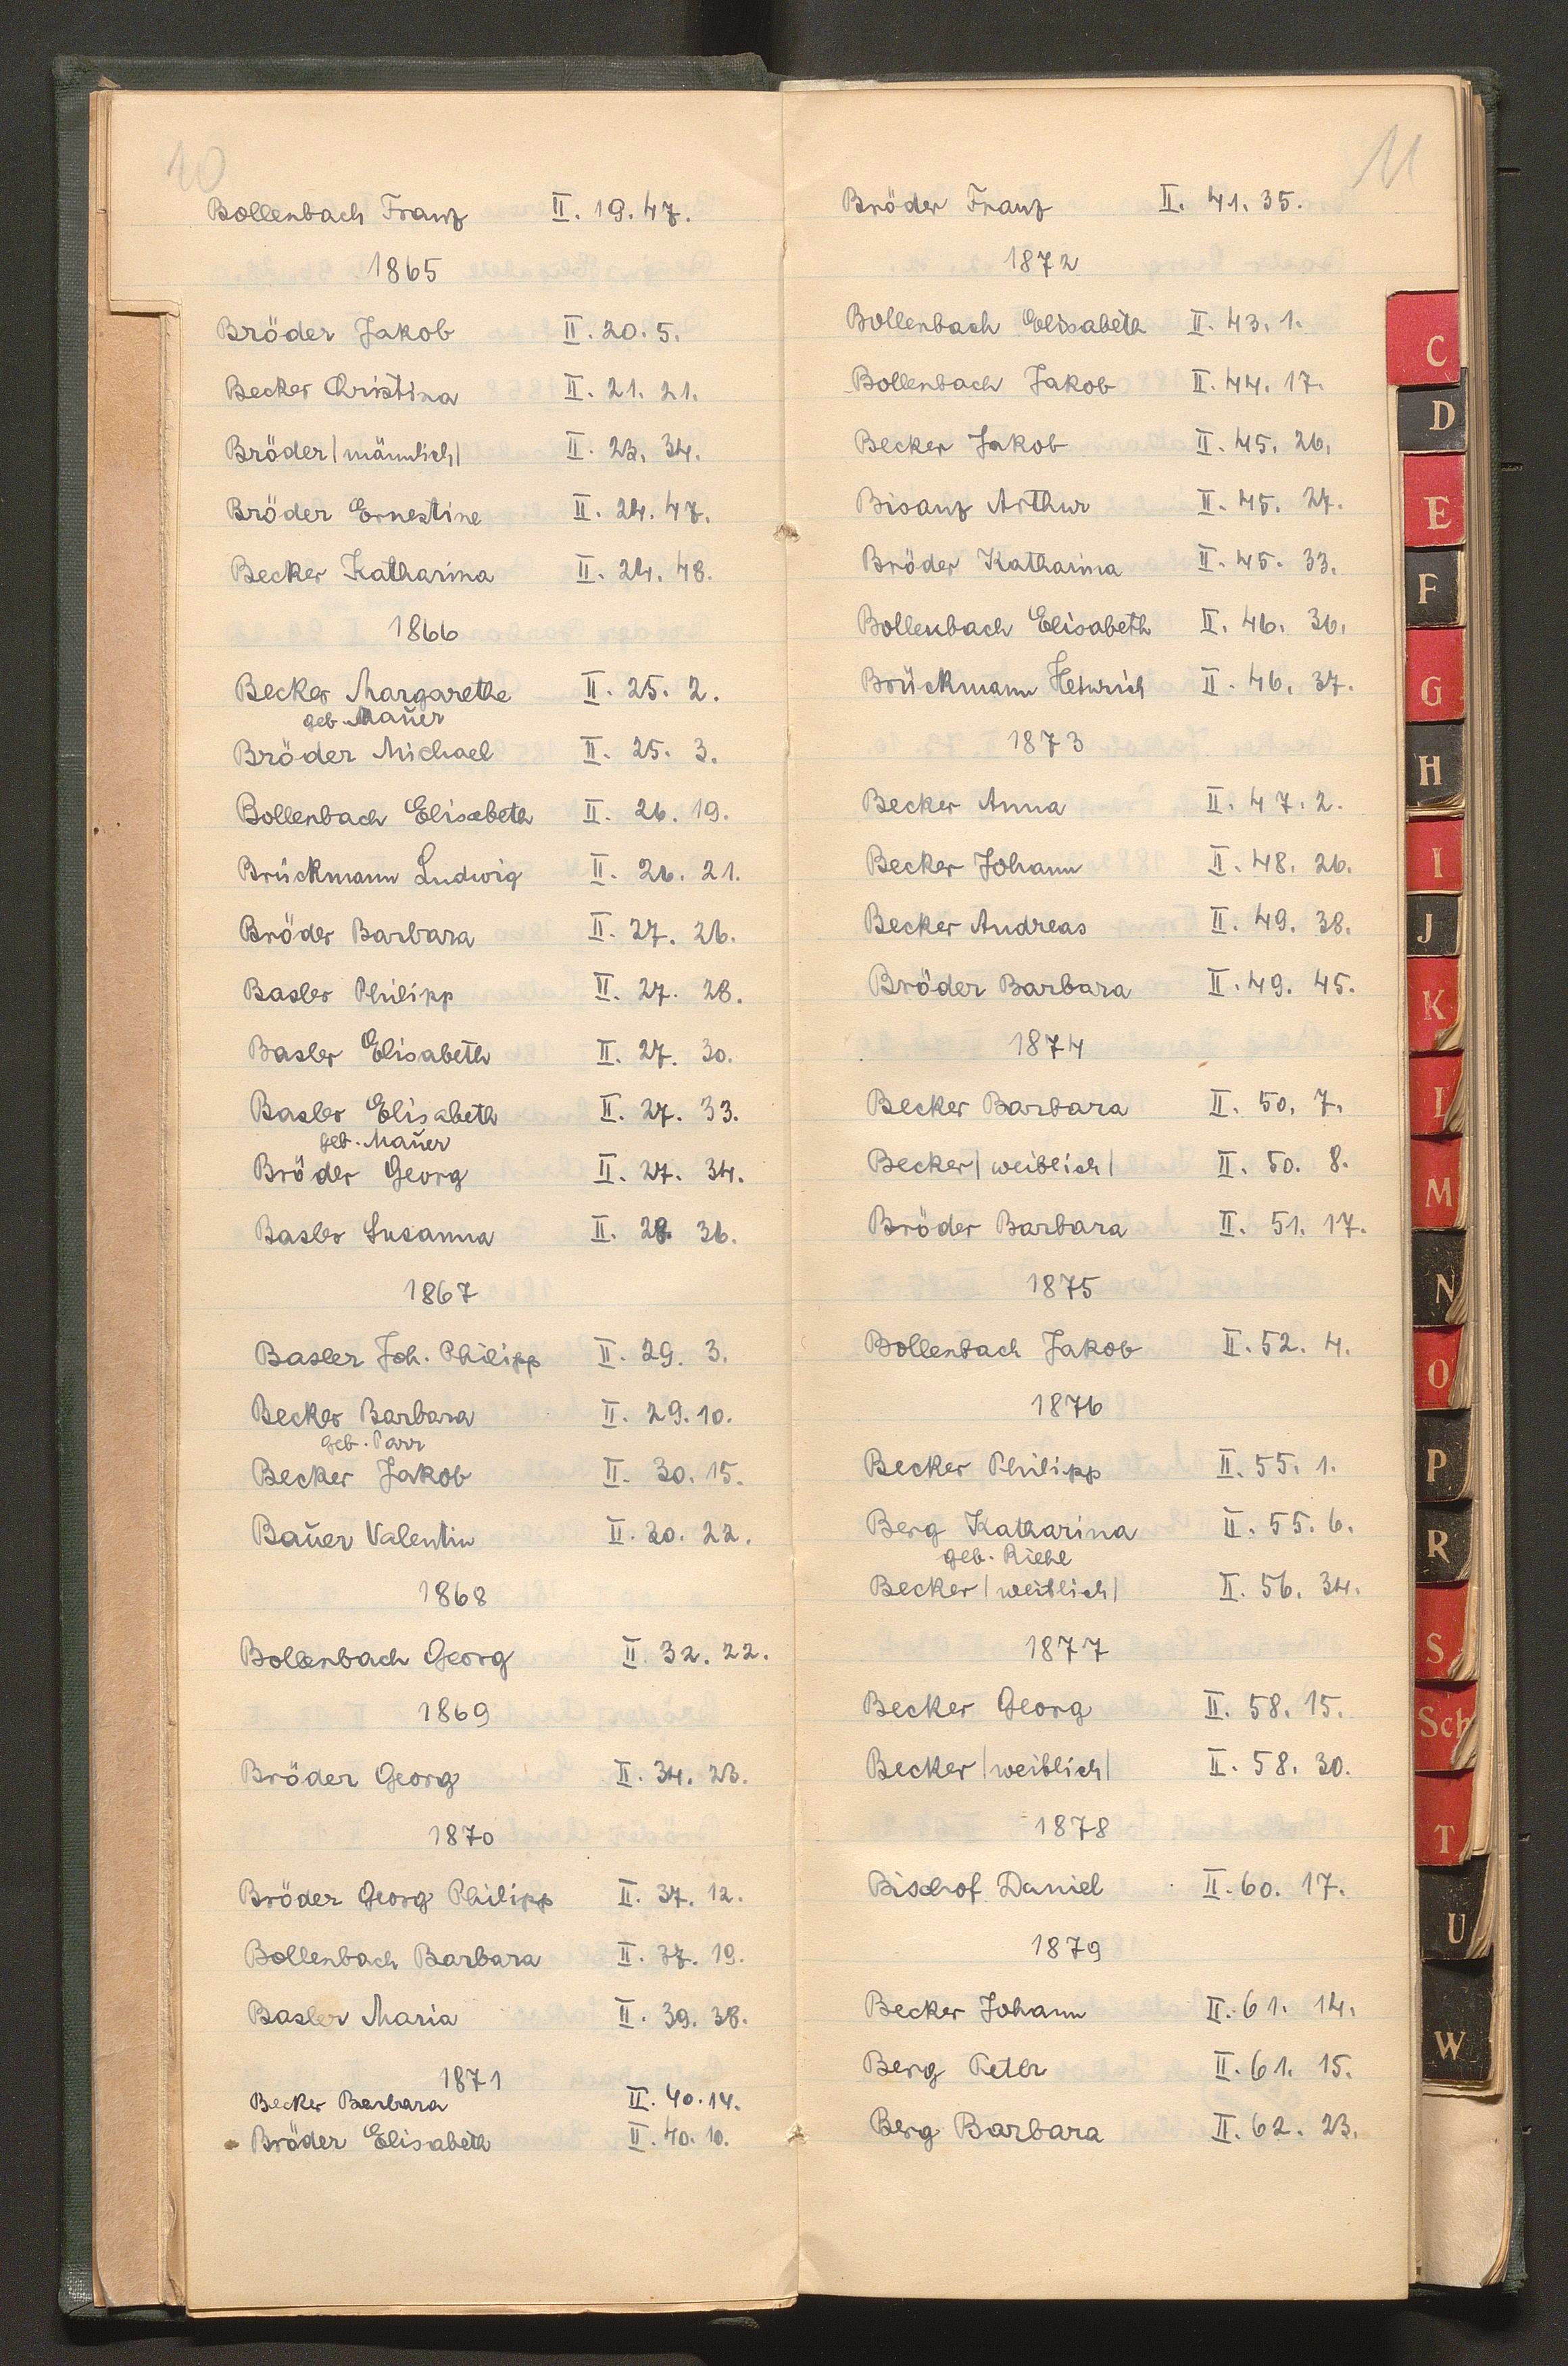 10
Bollenbach Franz II. 19. 47.
1865
Bröder Jakob II. 20. 5.
Becker Christina II. 21. 21.
Bröder |männlich| II. 23. 34.
Bröder Ernestine II. 24. 47.
Becker Katharina II. 24. 48.
1866
Becker Margarethe II. 25. 2.
geb. Mauer
Bröder Michael II. 25. 3.
Bollenbach Elisabeth II. 26. 19.
Brückmann Ludwig II. 26. 21.
Bröder Barbara II. 27. 26.
Basler Philipp II. 27. 28.
Basler Elisabeth II. 27. 30.
Basler Elisabeth II. 27. 33.
geb. Mauer
Bröder Georg II. 27. 34.
Basler Susanna II. 28. 36.
1867
Basler Joh. Philipp II. 29. 3.
Becker Barbara II. 29. 10.
geb. Parr
Becker Jakob II. 30. 15.
Bauer Valentin II. 30. 22.
1868
Bollenbach Georg II. 32. 22.
1869
Bröder Georg II. 34. 23.
1870
Bröder Georg Philipp II. 37. 12.
Bollenbach Barbara II. 37. 19.
Basler Maria II. 39. 38.
1871
Becker Barbara II. 40. 14.
Bröder Elisabeth II. 40. 10.
11
Bröder Franz II. 41. 35.
1872
Bollenbach Elisabeth II. 43. 1.
Bollenbach Jakob II. 44. 17.
Becker Jakob II. 45. 26.
Bisanz Arthur II. 45. 27.
Bröder Katharina II. 45. 33.
Bollenbach Elisabeth II. 46. 36.
Brückmann Heinrich II. 46. 37.
1873
Becker Anna II. 47. 2.
Becker Johann II. 48. 26.
Becker Andreas II. 49. 38.
Bröder Barbara II. 49. 45.
1874
Becker Barbara II. 50. 7.
Becker |weiblich| II. 50. 8.
Bröder Barbara II. 51. 17.
1875
Bollenbach Jakob II. 52. 4.
1876
Becker Philipp II. 55. 1.
Berg Katharina II. 55. 6.
geb. Riehl
Becker |weiblich| II. 56. 34.
1877
Becker Georg II. 58. 15.
Becker |weiblich| II. 58. 30.
1878
Bischof Daniel II. 60. 17.
1879
Becker Johann II. 61. 14.
Berg Peter II. 61. 15.
Berg Barbara II. 62. 23.
C
D
E
F
G
H
I
J
K
L
M
N
O
P
R
S
Sch
T
U
W